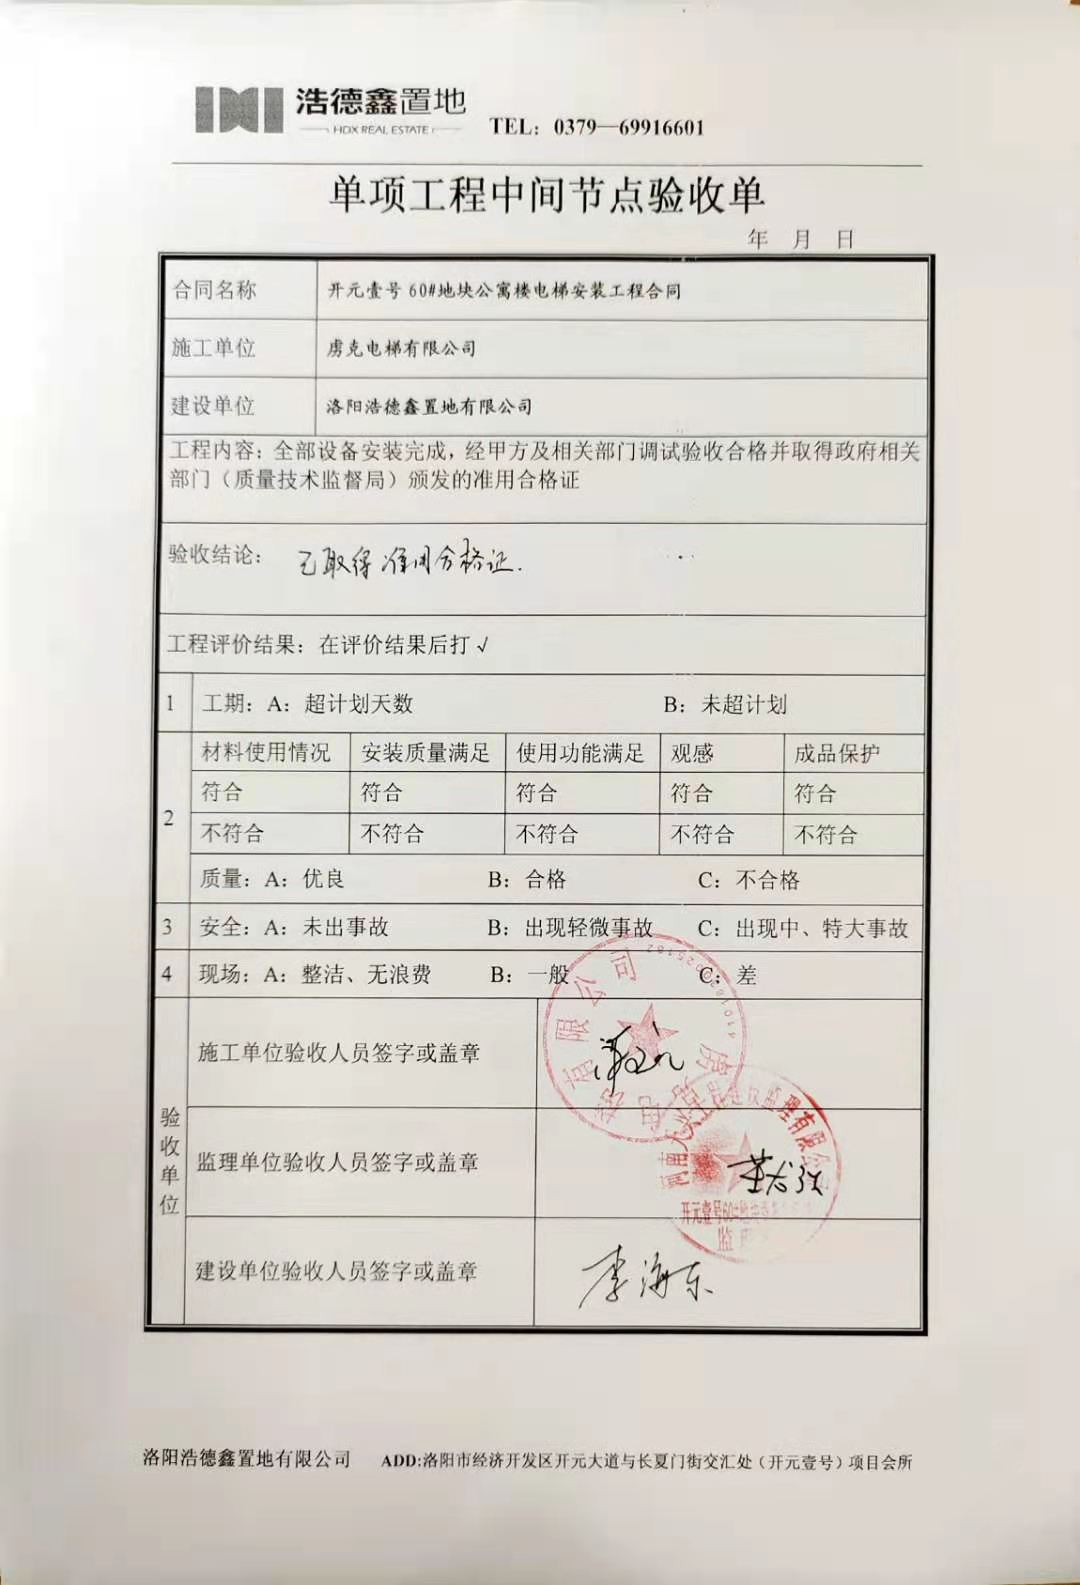 浩德鑫置地
HDX REAL ESTATE
TEL：0379—69916601
单项工程中间节点验收单
年 月 日
合同名称 开元壹号 60#地块公寓楼电梯安装工程合同
施工单位 虏克电梯有限公司
建设单位 洛阳浩德鑫置地有限公司
工程内容：全部设备安装完成，经甲方及相关部门调试验收合格并取得政府相关
部门（质量技术监督局）颁发的准用合格证
验收结论： 已取得准用合格证.
工程评价结果：在评价结果后打√
1 工期：A：超计划天数 B：未超计划
2
材料使用情况 安装质量满足 使用功能满足 观感 成品保护
符合 符合 符合 符合 符合
不符合 不符合 不符合 不符合 不符合
质量：A：优良 B：合格 C：不合格
3 安全：A：未出事故 B：出现轻微事故 C：出现中、特大事故
4 现场：A：整洁、无浪费 B：一般 C：差
验收单位
施工单位验收人员签字或盖章
有限公司
监理单位验收人员签字或盖章
监理有限公司
开元壹号60#地
建设单位验收人员签字或盖章 李海东
洛阳浩德鑫置地有限公司 ADD:洛阳市经济开发区开元大道与长夏门街交汇处（开元壹号）项目会所